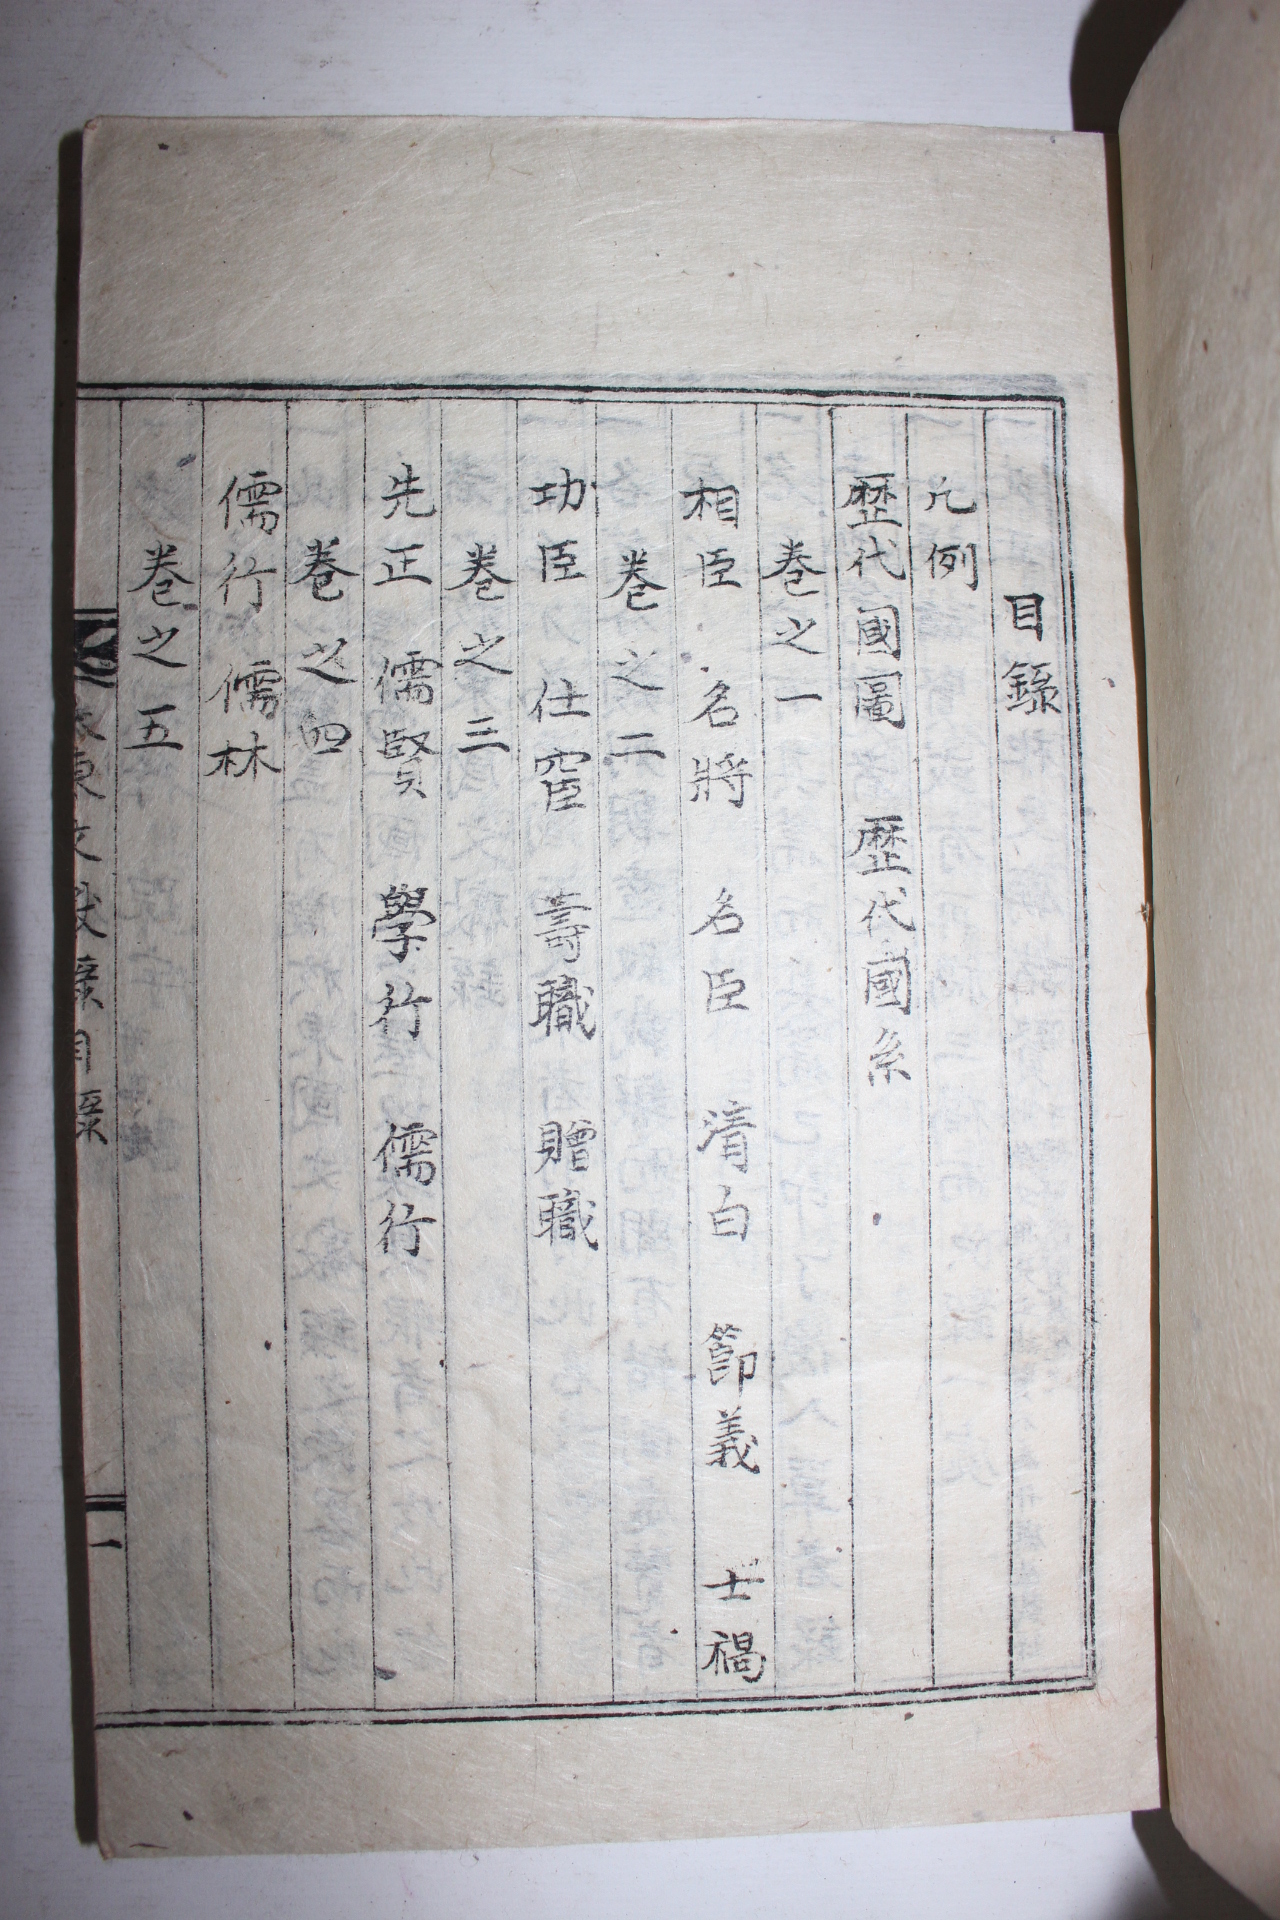 目錄
凢例
歷代國圖 歷代國系
卷之一
相臣 名將 名臣 清白 節義 士禍
卷之二
功臣 仕宦 壽職 贈職
卷之三
先正 儒賢 學行 儒行
卷之四
儒行 儒林
卷之五
東文獻錄目錄
一